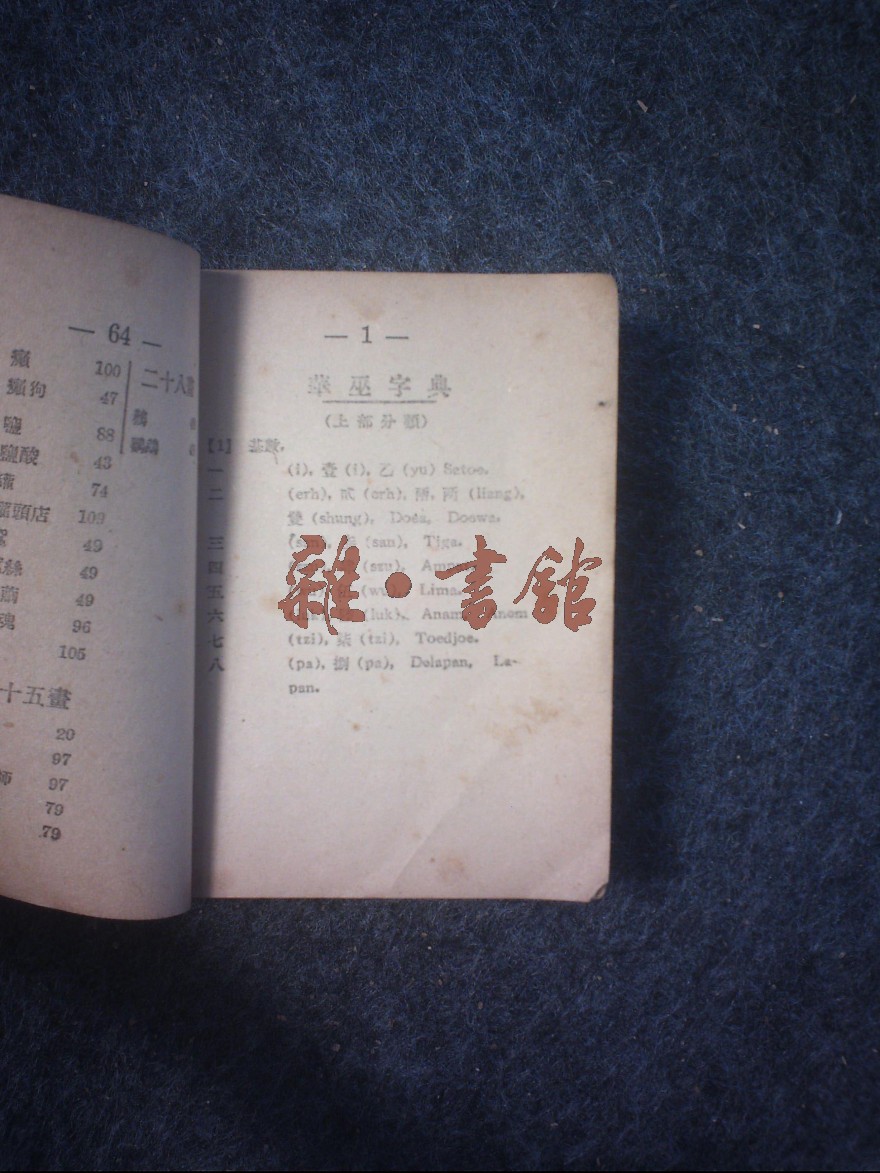 — 64 —
癲 100
癲狗 47
鹽 88
鹽酸 43
74
罐頭店 109
49
絲 49
49
魂 96
105
十五畫
20
97
師 97
79
79
二十八畫
— 1 —
華巫字典
(上部分類)
【1】 基數.
一 (i), 壹 (i), 乙 (yu) Satoe.
二 (erh), 貳 (erh), 兩 (liang),
雙 (shung), Doea, Doewa.
三 (san), (san), Tiga.
四 (szu),
五 (wu), Lima.
六 (luk), Anam,
七 (tzi), 柒 (tzi), Toedjoe.
八 (pa), 捌 (pa), Delapan, La-
pan.
雜·書館